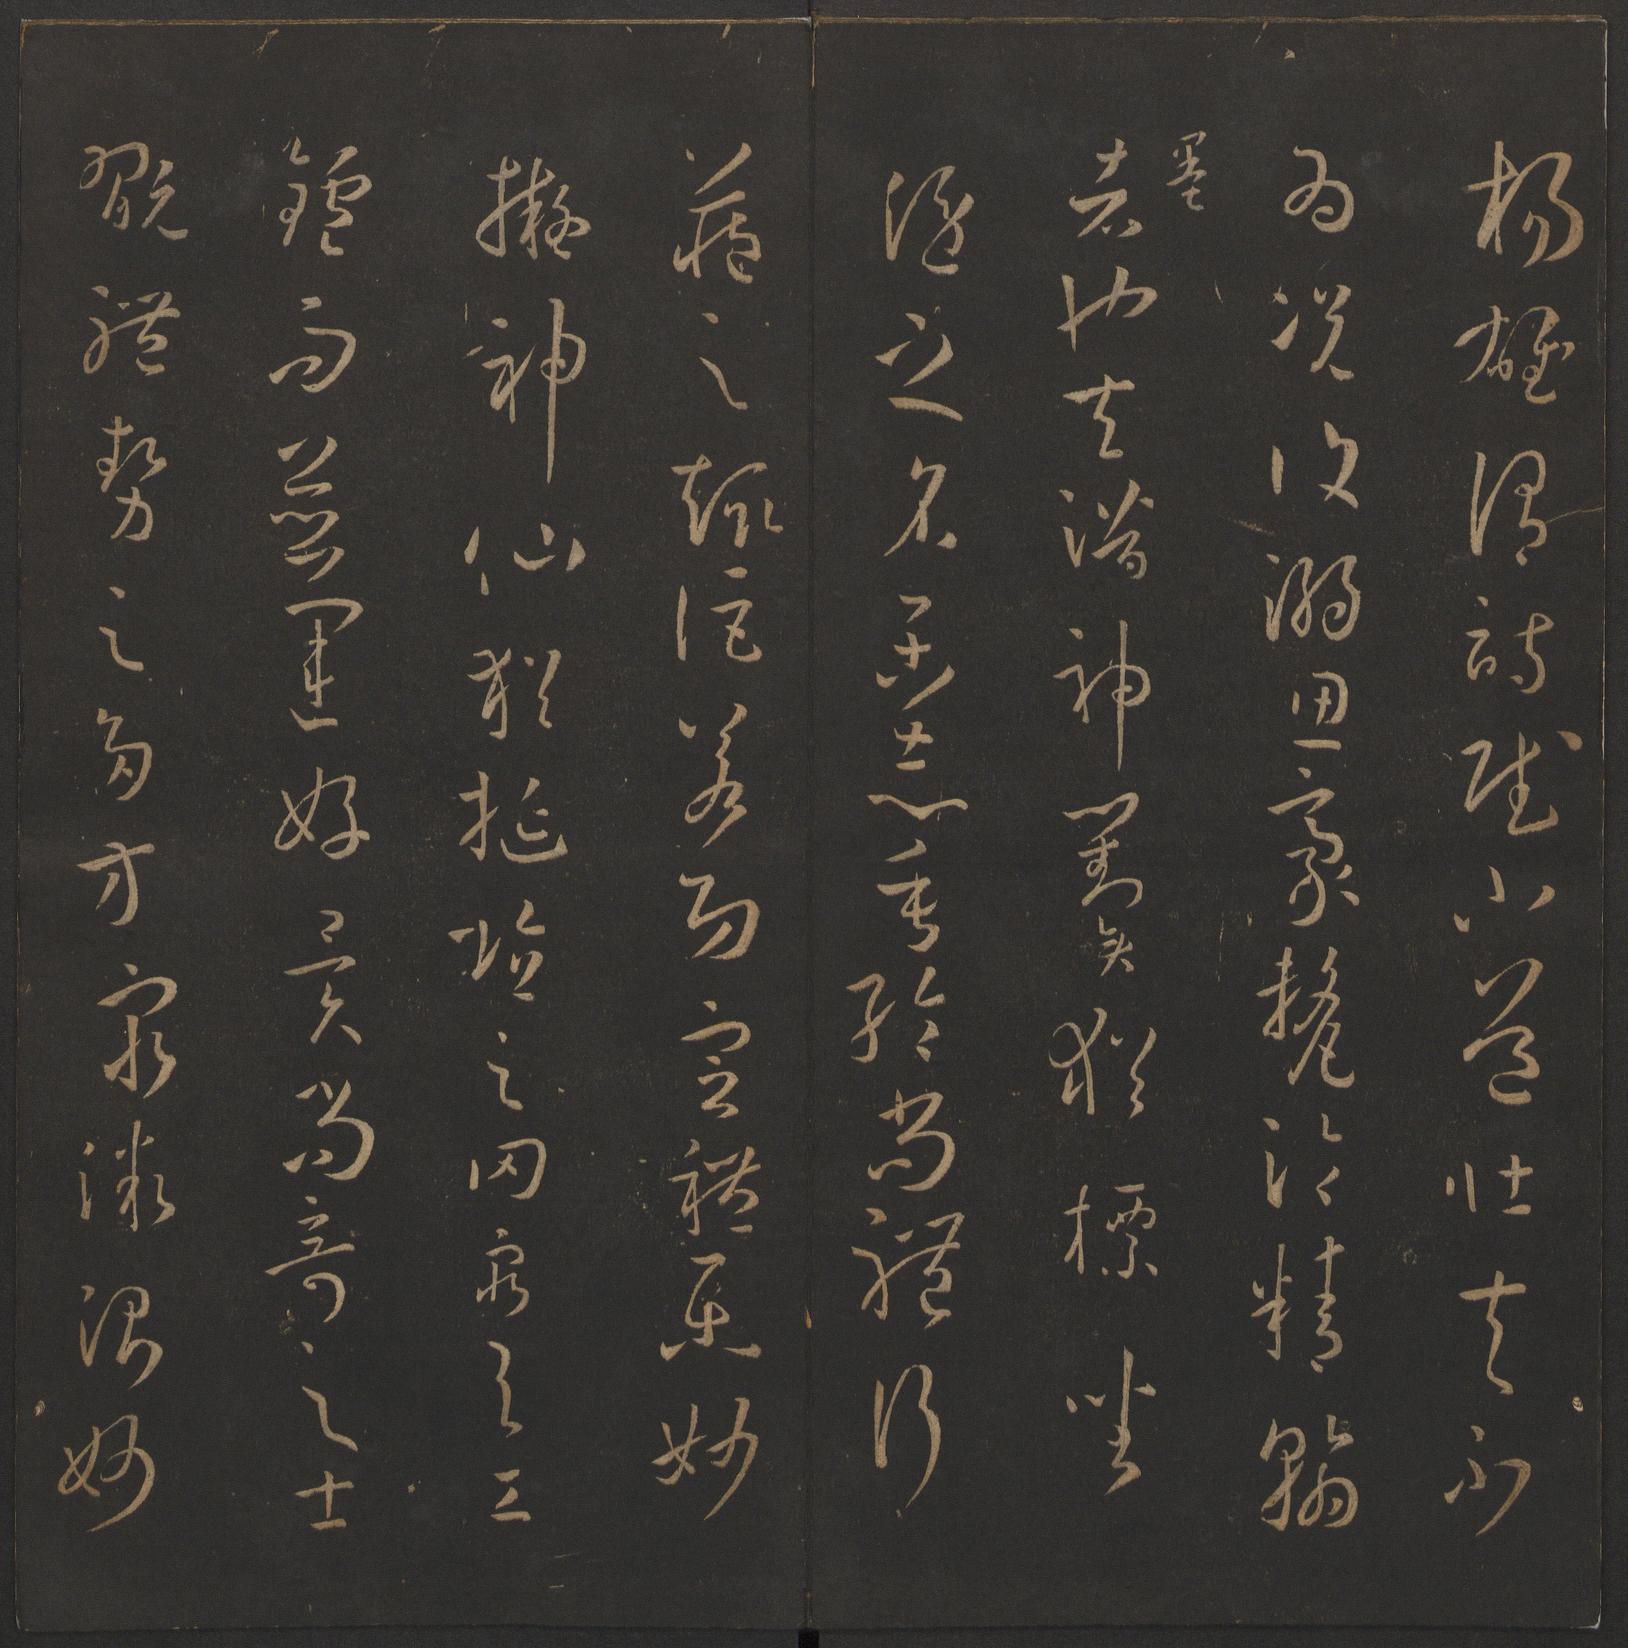 楊雄謂詩賦小道壯夫不
為況復溺思豪氂淪精翰
墨
者也夫潛神對奕猶標坐
隱之名樂志垂綸尚體行
藏之趣詎若功宣禮樂妙
擬神仙猶挻埴之罔窮與工
鑪而並運好異尚奇之士
翫體勢之多方窮微測妙